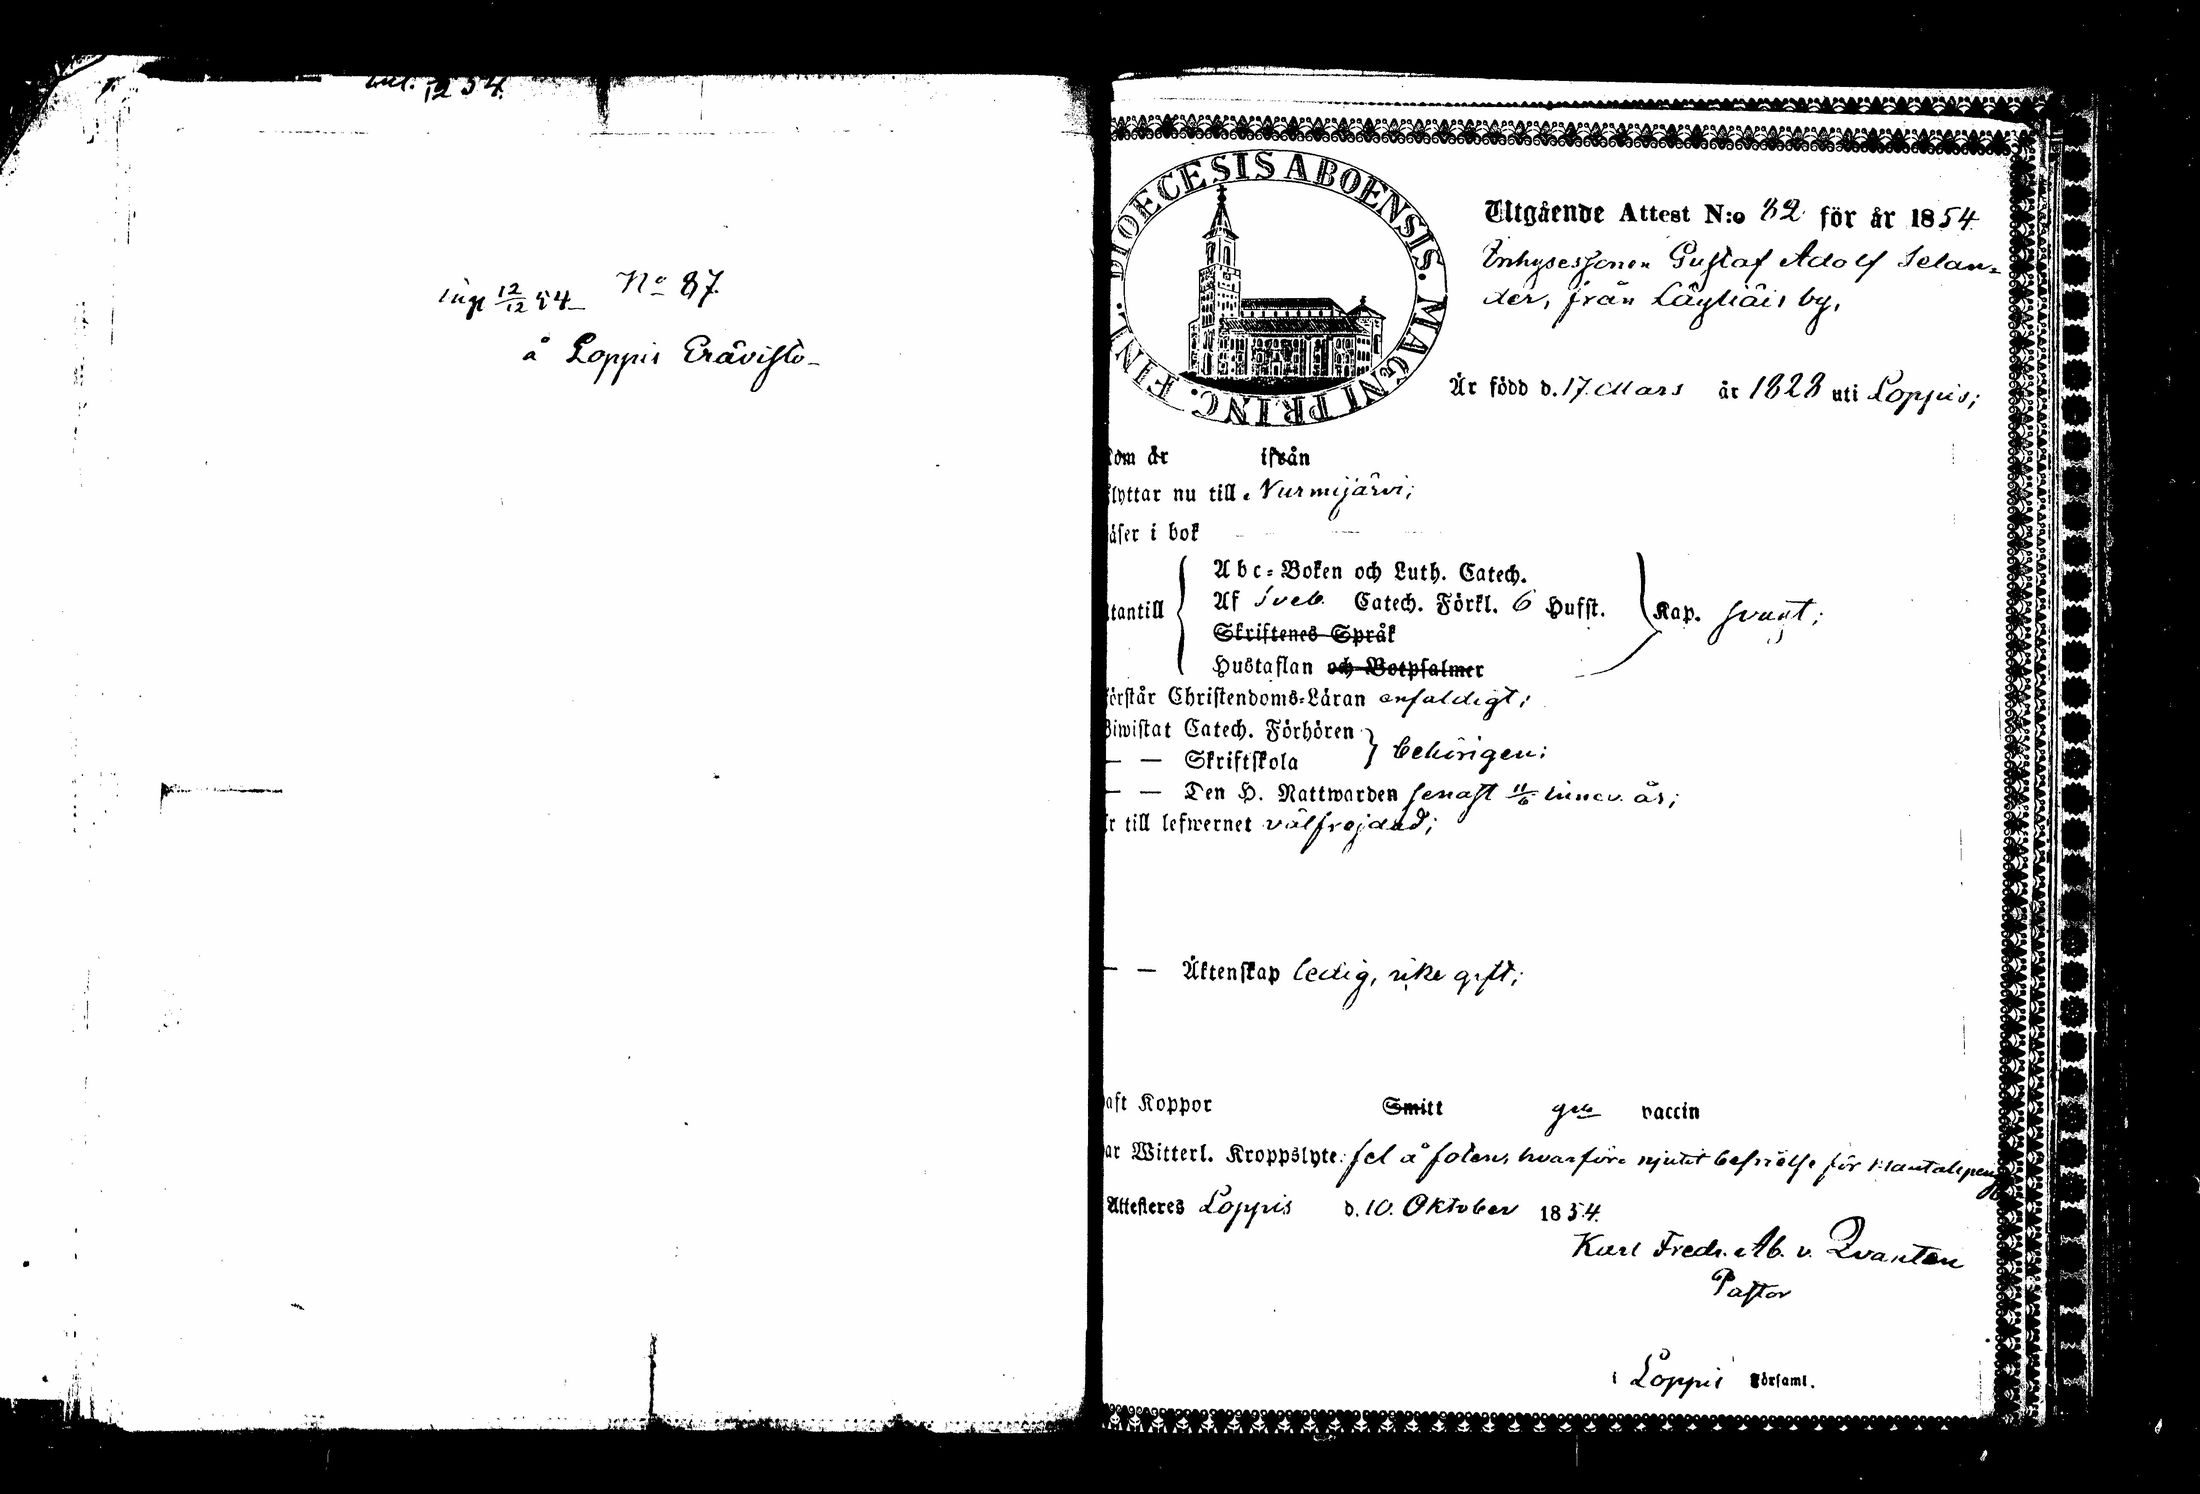 12 54.
ing 12/12 54 No 87.
å Loppis Erävisto
DIOECESIS ABOENSIS. MAGNI PRINC. FINL.
Utgående Attest N:o 82 för år 1854
Inhysessonen Gustaf Adolf Selan=
der, från Läyliäis by,
Är född d. 17 Mars år 1828 uti Loppis;
kom år ifrån
flyttar nu till Nurmijärvi;
läser i bok
utantill
Abc=Boken och Luth. Catech.
Af Sveb. Catech. Förkl. 6 Hufst.
Skriftenes Språk
Hustaflan och Botpsalmer
Kap. svagt;
förstår Christendoms=Läran enfaldigt;
Biwistat Catech. Förhören
— — Skriftskola
behörigen;
— — Den H. Nattwarden senast 11/6 innev. år;
är till lefwernet välfrejdad;
— — Äktenskap ledig, icke gift;
haft Koppor Smitt gm vaccin
har Witterl. Kroppslyte: fel å foten, hvarföre njutit befrielse för Mantalspeng
Attesteres Loppis d. 10. Oktober 1854.
Karl Fredr. Ab. v. Qvanten
Pastor
i Loppis Församl.